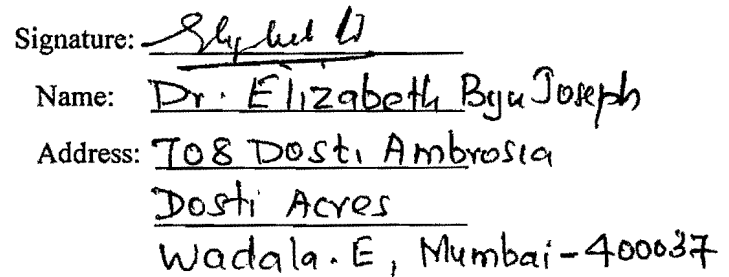 Signature:
Name: Dr. Elizabeth Byu Joseph
Address: 708 Dosti Ambrosia
Dosti Acres
Wadala. E, Mumbai - 400037